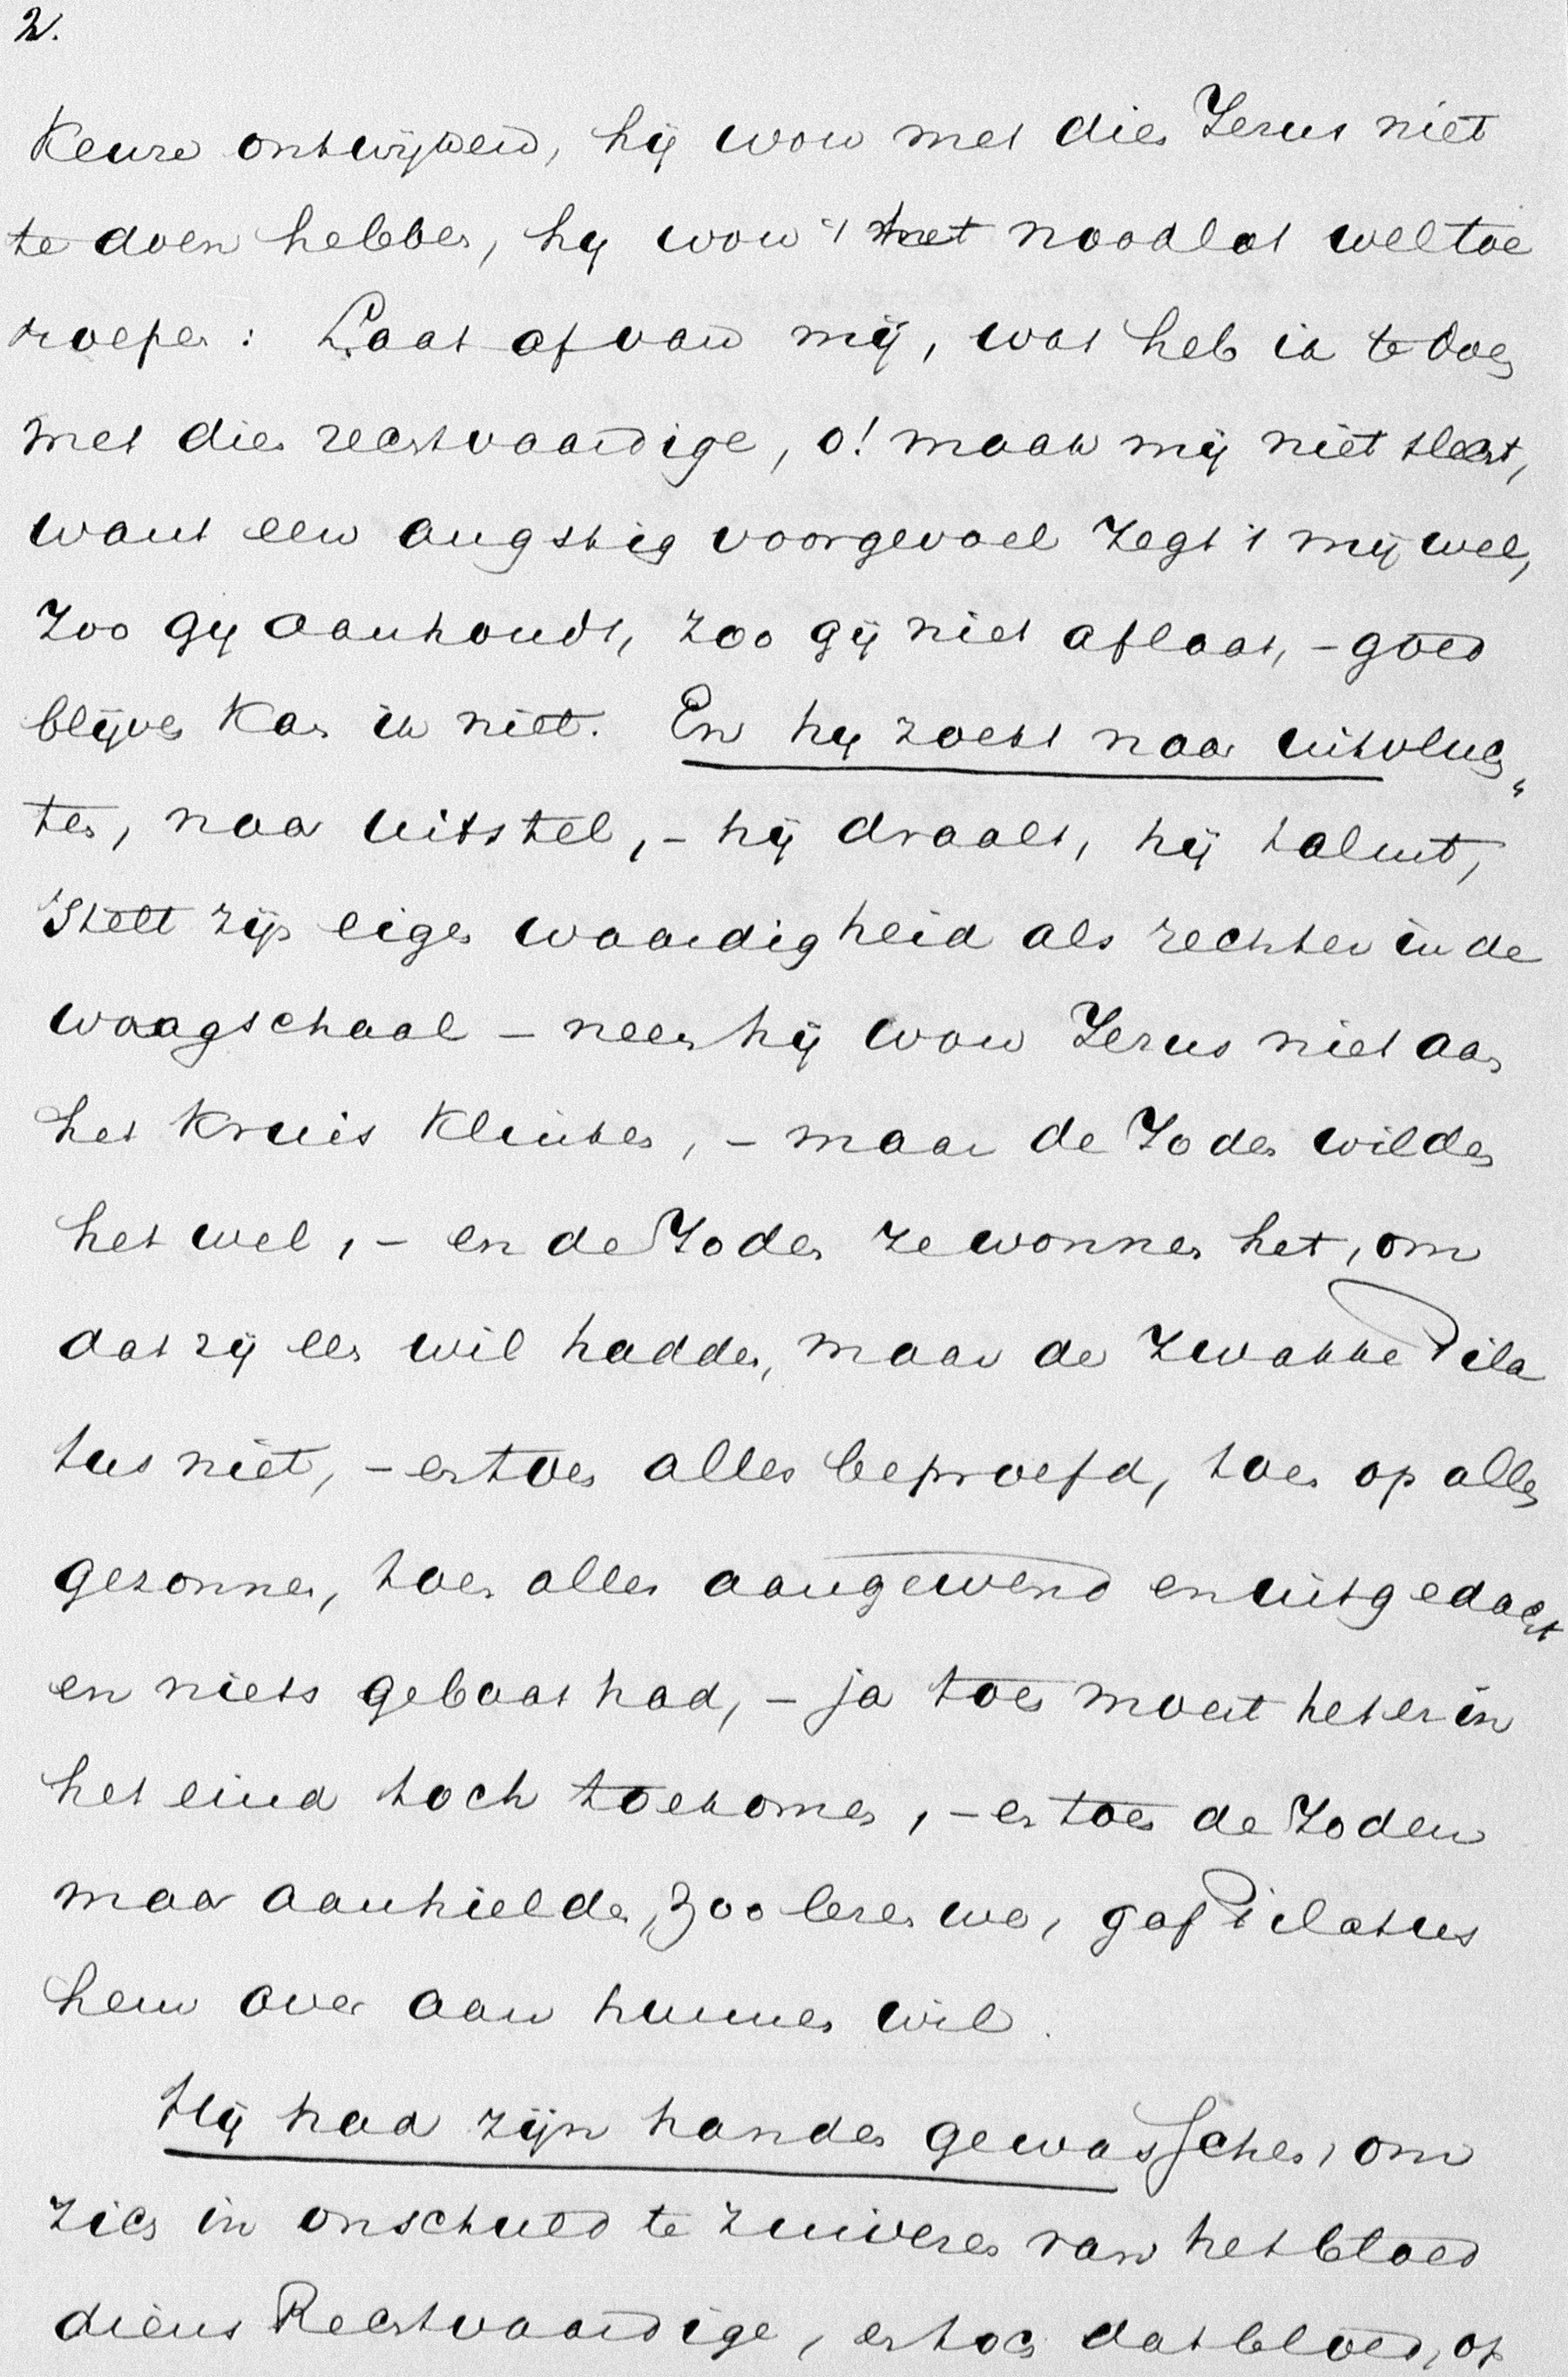 2.
keure ontwijken, hij wou met dien Jezus niet
te doen hebben, hij wou 't het noodlot wel toe
roepen: Laat af van mij, wat heb ik te doen
met dien rechtvaardige, o! maak mij niet slecht,
want een angstig voorgevoel zegt 't mij wel,
zoo gij aanhoudt, zoo gij niet aflaat, - goed
blijven kan ik niet. En hij zoekt naar uitvluch„
ten, naar uitstel, - hij draalt, hij talmt,
stelt zijn eigen waardigheid als rechter in de
waagschaal - neen hij wou Jezus niet aan
het kruis klinken, - maar de Joden wilden
het wel, - en de Joden ze wonnen het, om
dat zij een wil hadden, maar de zwakke Pila
tus niet, - en toen alles beproefd, toen op alles
gezonnen, toen alles aangewend en uitgedacht
en niets gebaat had, - ja toen moest het er in
het eind toch toekomen, - en toen de Joden
maar aanhielden, zoo lezen we, gaf Pilatus
hem over aan hunnen wil.
Hij had zijn handen gewasschen, om
zich in onschuld te zuiveren van het bloed
diens Rechtvaardige, en toch dat bloed, op